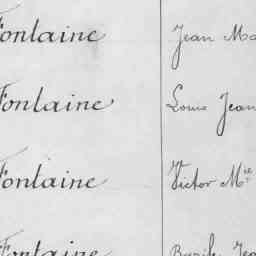 Fontaine Jean Ma
Fontaine Louis Jean
Fontaine Victor Mie
Fontaine Basile Jea